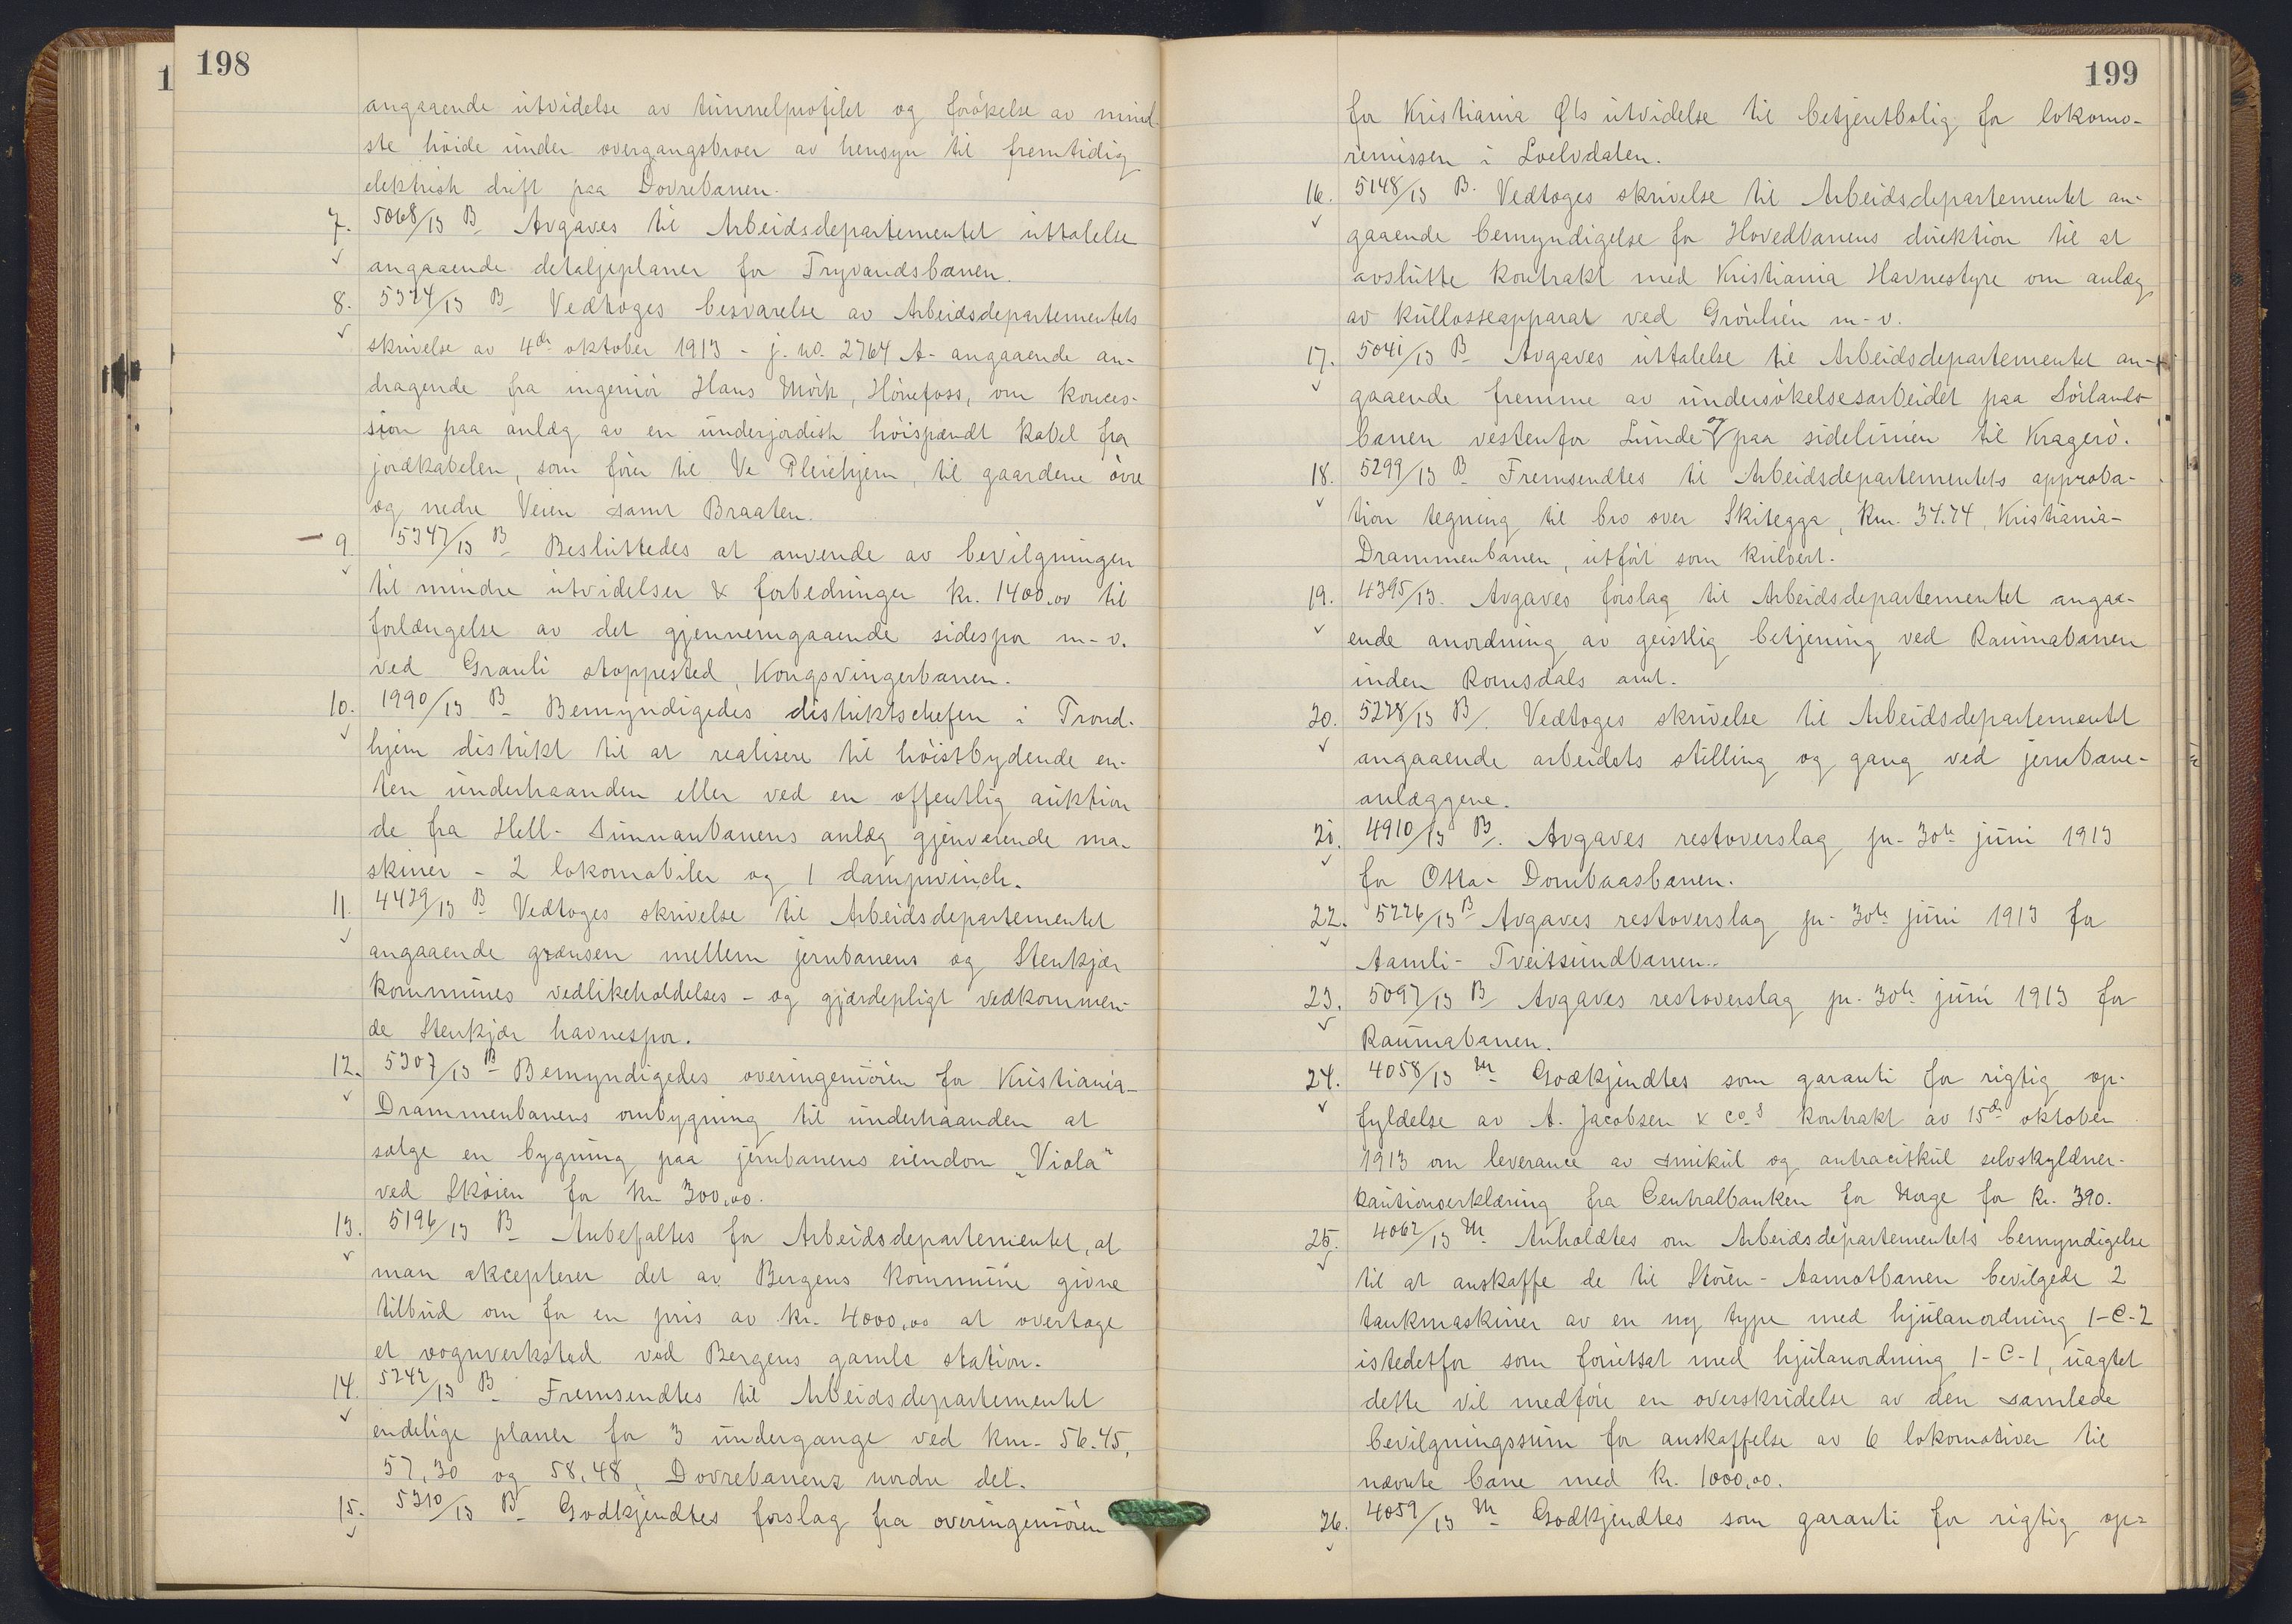 198
angaaende utvidelse av tunnelprofilet og forøkelse av mind
ste høide under overgangsbroer av hensyn til fremtidig
elektrisk drift paa Dovrebanen.
7. 5068/13 B. Avgaves til Arbeidsdepartementet uttalelse
angaaende detaljeplaner for Tryvandsbanen.
8. 5324/13 B. Vedtoges besvarelse av Arbeidsdepartementets
skrivelse av 4de oktober 1913 - j. no. 2764 A - angaaende an-
dragende fra ingeniør Hans Mørk, Hønefoss, om konces-
sion paa anlæg av en underjordisk høispændt kabel fra
jordkabelen, som fører til Ve Pleiehjem, til gaardene øvre
og nedre Veien samt Braaten.
9. 5347/13 B. Besluttedes at anvende av bevilgningen
til mindre utvidelser & forbedringer kr. 1400,00 til
forlængelse av det gjennemgaaende sidespor m.v.
ved Granli stoppested, Kongsvingerbanen.
10. 1990/13 B. Bemyndigedes distriktschefen i Trond-
hjem distrikt til at realisere til høistbydende en-
ten underhaanden eller ved en offentlig auktion
de fra Hell-Sunnanbanens anlæg gjenværende ma-
skiner - 2 lokomobiler og 1 dampwinch.
11. 4429/13 B. Vedtoges skrivelse til Arbeidsdepartementet
angaaende grænsen mellem jernbanens og Stenkjær
kommunes vedlikeholdelses- og gjærdepligt vedkommen-
de Stenkjær havnespor.
12. 5307/13 B. Bemyndigedes overingeniøren for Kristiania-
Drammenbanens ombygning til underhaanden at
sælge en bygning paa jernbanens eiendom „Viola"
ved Skøien for kr. 300,00.
13. 5196/13 B. Anbefaltes for Arbeidsdepartementet, at
man akcepterer det av Bergens kommune givne
tilbud om for en pris av kr. 4000,00 at overtage
et vognverksted ved Bergens gamle station.
14. 5242/13 B. Fremsendtes til Arbeidsdepartementet
endelige planer for 3 undergange ved km. 56.45,
57,30 og 58,48, Dovrebanens nordre del.
15. 5310/13 B. Godkjendtes forslag fra overingeniøren
199
for Kristiania Øts utvidelse til betjentbolig for lokomo-
remissen i Loelvdalen.
16. 5148/13 B. Vedtoges skrivelse til Arbeidsdepartementet an-
gaaende bemyndigelse for Hovedbanens direktion til at
avslutte kontrakt med Kristiania Havnestyre om anlæg
av kullosseapparat ved Grønlien m.v.
17. 5041/13 B. Avgaves uttalelse til Arbeidsdepartementet an-
gaaende fremme av undersøkelsesarbeidet paa Sørlands-
banen vestenfor Lunde og paa sidelinien til Kragerø.
18. 5299/13 B. Fremsendtes til Arbeidsdepartementets approba-
tion tegning til bro over Skitegga, km. 34.74, Kristiania-
Drammenbanen, utført som kulvert.
19. 4395/13. Avgaves forslag til Arbeidsdepartementet angaa-
ende anordning av geistlig betjening ved Raumabanen
inden Romsdals amt.
20. 5228/13 B. Vedtoges skrivelse til Arbeidsdepartementet
angaaende arbeidets stilling og gang ved jernbane-
anlæggene.
21. 4910/13 B. Avgaves restoverslag pr. 30te juni 1913
for Otta-Dombaasbanen.
22. 5226/13 B Avgaves restoverslag pr. 30te juni 1913 for
Aamli-Tveitsundbanen.
23. 5097/13 B Avgaves restoverslag pr. 30te juni 1913 for
Raumabanen.
24. 4058/13 M. Godkjendtes som garanti for rigtig op-
fyldelse av A. Jacobsen & Co.s kontrakt av 15de oktober
1913 om leverance av smikul og antracitkul selvskyldner-
kautionserklæring fra Centralbanken for Norge for kr. 390.
25. 4062/13 M. Anholdtes om Arbeidsdepartementets bemyndigelse
til at anskaffe de til Støren-Aamotbanen bevilgede 2
tankmaskiner av en ny type med hjulanordning 1-C-2
istedetfor som forutsat med hjulanordning 1-C-1, uagtet
dette vil medføre en overskridelse av den samlede
bevilgningssum for anskaffelse av 6 lokomotiver til
nævnte bane med kr. 1000,00.
26. 4059/13 M. Godkjendtes som garanti for rigtig op-